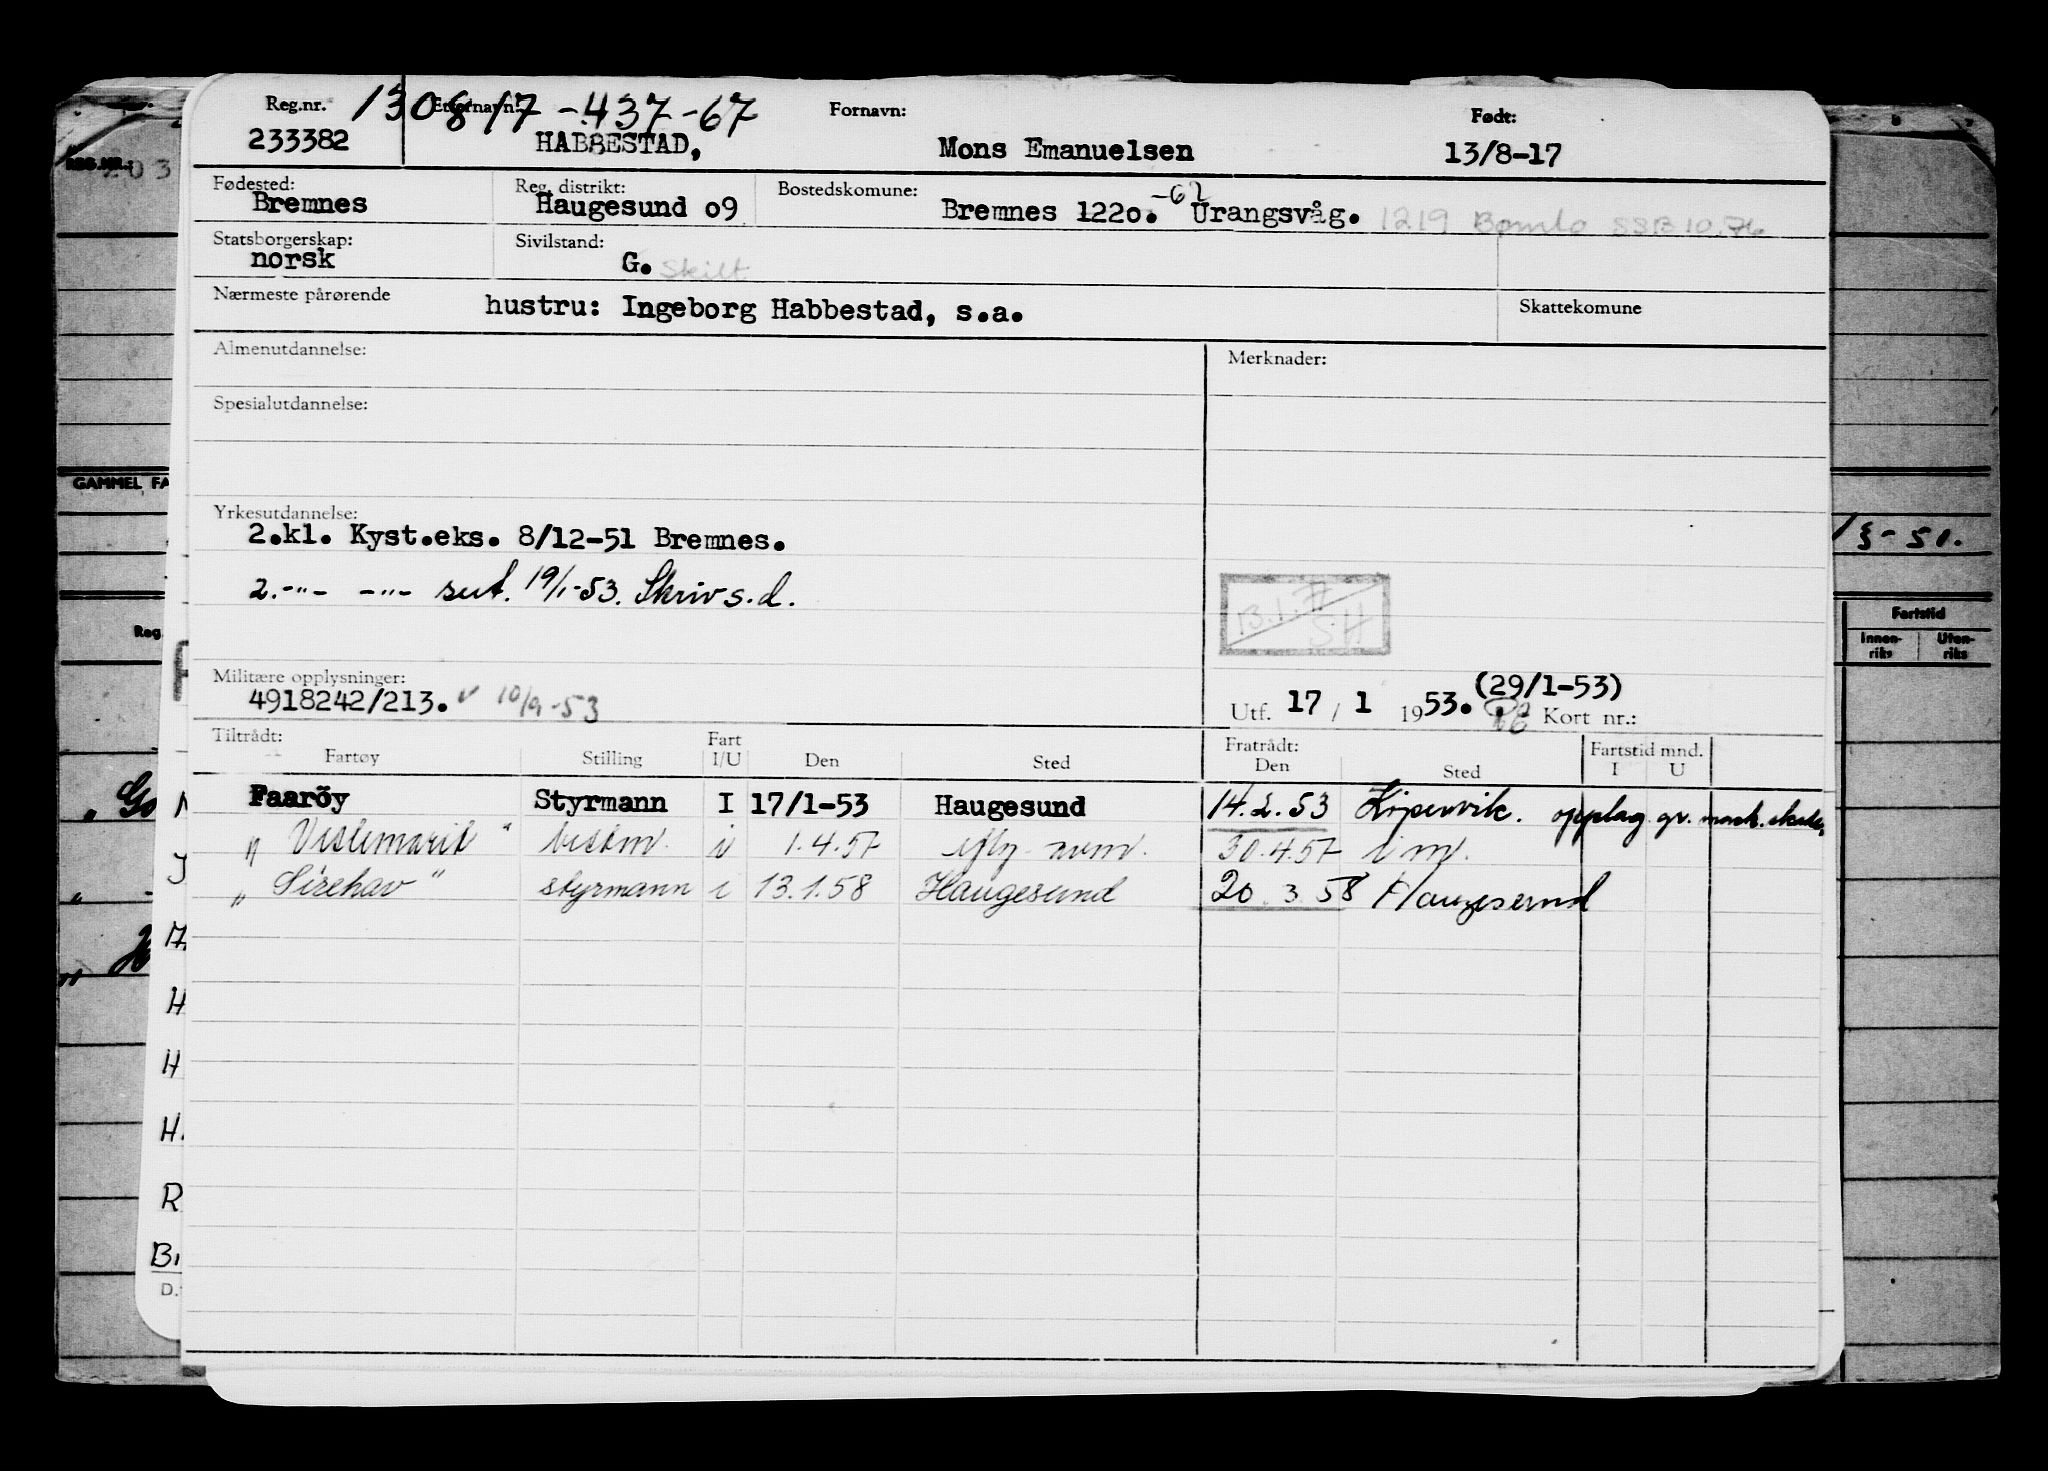 Reg.nr. Etternavn: 130817-437-67 Fornavn: Født:
233382 HABBESTAD, Mons Emanuelsen 13/8-17
Fødested: Reg. distrikt: Bostedskomune:
Bremnes Haugesund o9 Bremnes 1220. -62 Urangsvåg. 1219 Bømlo SSB 10.76
Statsborgerskap: Sivilstand:
norsk G. Skilt
Nærmeste pårørende hustru: Ingeborg Habbestad, s.a. Skattekomune
Almenutdannelse: Merknader:
Spesialutdannelse:
GAMMEL FA
Yrkesutdannelse:
2.kl. Kyst.eks. 8/12-51 Bremnes.
2.-"- -"- sert. 19/1-53. Skriv s.d.
B.I.7
SH
Militære opplysninger:
4918242/213. v 10/9-53
Utf. 17 / 1 1953. (29/1-53) Kort nr.:
Tiltrådt: Fratrådt: Fartstid mnd.
Fartøy Stilling Fart I/U Den Sted Den Sted I U
Faaröy Styrmann I 17/1-53 Haugesund 14.2.53 Kopervik. opplag gr. mask. skade,
" Vestemarit " bestm. i 1.4.57 30.4.57 i m.
" Sirehav " styrmann i 13.1.58 Haugesund 20.3.58 Haugesund
REG.NR.
Reg.
Fartstid
Innen-riks Uten-riks